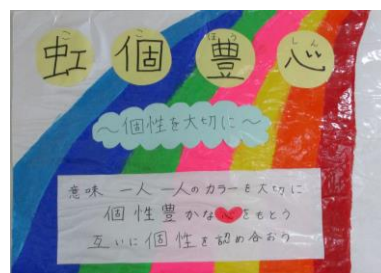 虹個豊心
こ こ ほう しん
～個性を大切に～
意味 一人一人のカラーを大切に
個性豊かな心をもとう
互いに個性を認め合おう